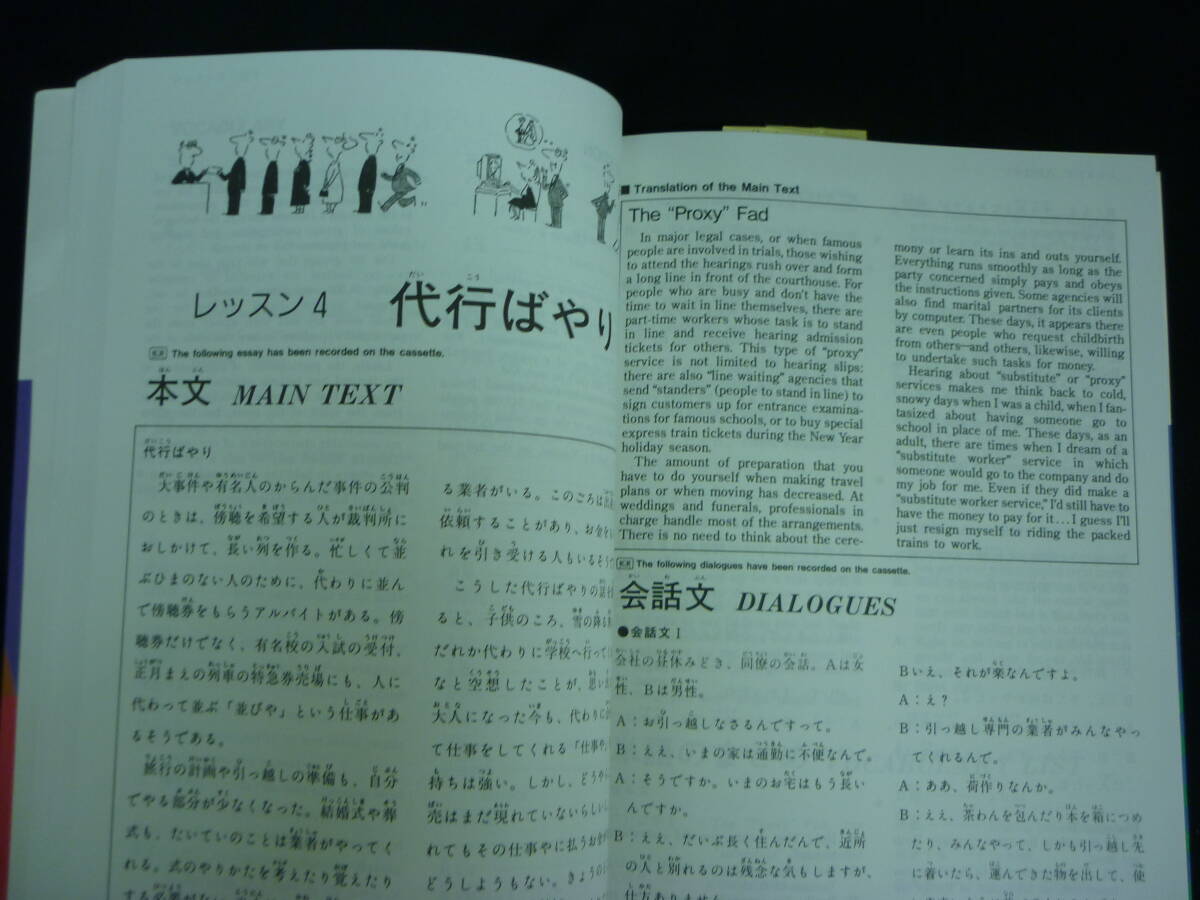 レッスン4 代行ばやり
The following essay has been recorded on the cassette.
本文 MAIN TEXT
代行ばやり
大事件や有名人のからんだ事件の公判
のときは、傍聴を希望する人が裁判所に
おしかけて、長い列を作る。忙しくて並
ぶひまのない人のために、代わりに並ん
で傍聴券をもらうアルバイトがある。傍
聴券だけでなく、有名校の入試の受付、
正月まえの列車の特急券売場にも、人に
代わって並ぶ「並びや」という仕事があ
るそうである。
旅行の計画や引っ越しの準備も、自分
でやる部分が少なくなった。結婚式や葬
式も、たいていのことは業者がやってく
れる。式のやりかたを考えたり覚えたり
る業者がいる。このごろは
依頼することがあり、お金を
れを引き受ける人もいるそう
こうした代行ばやりの話
ると、子供のころ、雪の降る
だれか代わりに学校へ行って
なと空想したことが、思い
大人になった今も、代わりに
て仕事をしてくれる「仕事や
持ちは強い。しかし、どうや
売はまだ現れていないらしい
れてもその仕事やに払うお金
どうしようもない。きょうの
■ Translation of the Main Text
The “Proxy” Fad
In major legal cases, or when famous
people are involved in trials, those wishing
to attend the hearings rush over and form
a long line in front of the courthouse. For
people who are busy and don't have the
time to wait in line themselves, there are
part-time workers whose task is to stand
in line and receive hearing admission
tickets for others. This type of “proxy”
service is not limited to hearing slips:
there are also “line waiting” agencies that
send “standers” (people to stand in line) to
sign customers up for entrance examina-
tions for famous schools, or to buy special
express train tickets during the New Year
holiday season.
The amount of preparation that you
have to do yourself when making travel
plans or when moving has decreased. At
weddings and funerals, professionals in
charge handle most of the arrangements.
There is no need to think about the cere-
mony or learn its ins and outs yourself.
Everything runs smoothly as long as the
party concerned simply pays and obeys
the instructions given. Some agencies will
also find marital partners for its clients
by computer. These days, it appears there
are even people who request childbirth
from others—and others, likewise, willing
to undertake such tasks for money.
Hearing about “substitute” or “proxy”
services makes me think back to cold,
snowy days when I was a child, when I fan-
tasized about having someone go to
school in place of me. These days, as an
adult, there are times when I dream of a
“substitute worker” service in which
someone would go to the company and do
my job for me. Even if they did make a
“substitute worker service,” I'd still have to
have the money to pay for it…I guess I'll
just resign myself to riding the packed
trains to work.
The following dialogues have been recorded on the cassette.
会話文 DIALOGUES
●会話文 I
会社の昼休みどき、同僚の会話。Aは女
性、Bは男性。
A：お引っ越しなさるんですって。
B：ええ、いまの家は通勤に不便なんで。
A：そうですか。いまのお宅はもう長い
んですか。
B：ええ、だいぶ長く住んだんで、近所
の人と別れるのは残念な気もしますが、
仕方ありません
Bいえ、それが楽なんですよ。
A：え？
B：引っ越し専門の業者がみんなやっ
てくれるんで。
A：ああ、荷作りなんか。
B：ええ、茶わんを包んだり本を箱につめ
たり、みんなやって、しかも引っ越し先
に着いたら、運んできた物を出して、使